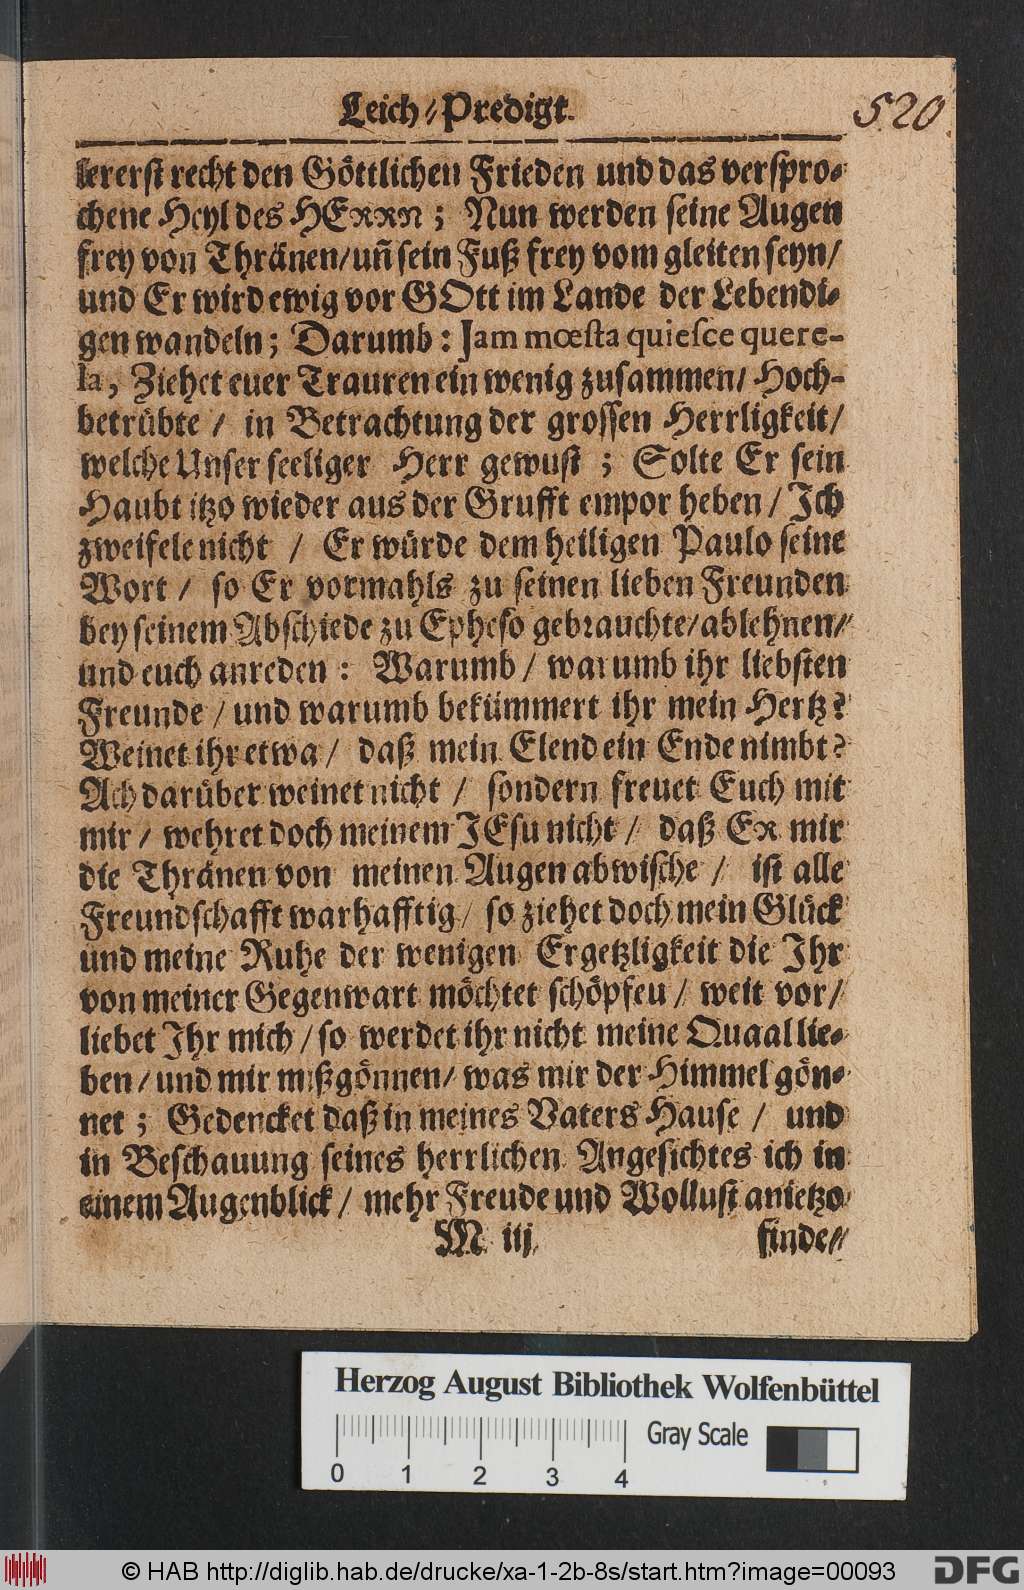 Leich-Predigt.
520
lererst recht den Göttlichen Frieden und das verspro-
chene Heyl des HErrn; Nun werden seine Augen
frey von Thränen/uñ sein Fuß frey vom gleiten seyn/
und Er wird ewig vor GOtt im Lande der Lebendi-
gen wandeln; Darumb: Jam mœsta quiesce quere-
la, Ziehet euer Trauren ein wenig zusammen/ Hoch-
betrübte / in Betrachtung der grossen Herrligkeit/
welche Unser seeliger Herr gewust ; Solte Er sein
Haubt itzo wieder aus der Grufft empor heben / Ich
zweifele nicht / Er würde dem heiligen Paulo seine
Wort / so Er vormahls zu seinen lieben Freunden
bey seinem Abschiede zu Epheso gebrauchte/ablehnen/
und euch anreden : Warumb / warumb ihr liebsten
Freunde / und warumb bekümmert ihr mein Hertz?
Weinet ihr etwa / daß mein Elend ein Ende nimbt?
Ach darüber weinet nicht / sondern freuet Euch mit
mir / wehret doch meinem JEsu nicht / daß Er mir
die Thränen von meinen Augen abwische / ist alle
Freundschafft warhafftig / so ziehet doch mein Glück
und meine Ruhe der wenigen Ergetzligkeit die Ihr
von meiner Gegenwart möchtet schöpfeu / weit vor/
liebet Ihr mich / so werdet ihr nicht meine Quaal lie-
ben / und mir mißgönnen/ was mir der Himmel gön-
net ; Gedencket daß in meines Vaters Hause / und
in Beschauung seines herrlichen Angesichtes ich in
einem Augenblick / mehr Freude und Wollust anietzo
M iij
finde//
Herzog August Bibliothek Wolfenbüttel
Gray Scale
0 1 2 3 4
© HAB http://diglib.hab.de/drucke/xa-1-2b-8s/start.htm?image=00093
DFG